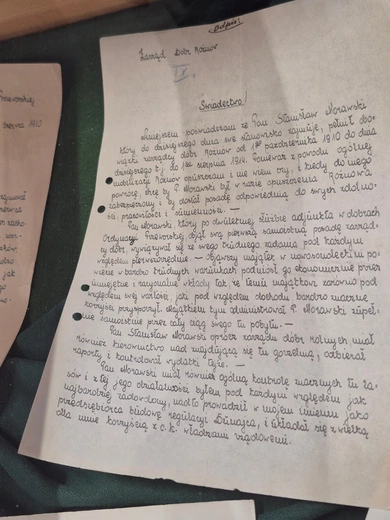 Odpis!
Zarząd Dóbr Rożnów
Świadectwo!
Niniejszem poświadczam że Pan Stanisław Morawski
który do dzisiejszego dnia swe stanowisko zajmuje, pełnił obo-
wiązki zarządcy dóbr Rożnów od 1go października 1910 do dnia
dzisiejszego t.j. do 1go sierpnia 1914. Ponieważ z powodu ogólnej
mobilizacji Rożnów opuszczam i nie wiem czy i kiedy do niego
powrócę, chcę by P. Morawski był w razie opuszczenia Rożnowa
zabezpieczony i by dostał posadę odpowiednią do swych zdolno-
ści, pracowitości i sumienności. —
Pan Morawski który po dwuletniej służbie adjunkta w dobrach
Ordynacji Przeworskiej objął swą pierwszą samodzielną posadę zarząd-
cy dóbr, wywiązywał się ze swego trudnego zadania pod każdym
względem pierwszorzędnie. — Objąwszy majątek w nowosądeckim po-
wiecie w bardzo trudnych warunkach podniósł go ekonomicznie przez
umiejętne i racjonalne wkłady tak że temu majątkowi zarówno pod
względem swej wartości, jak pod względem dochodu bardzo znaczne
korzyści przysporzył. Majątkiem tym administrował P. Morawski zupeł-
nie samodzielnie przez cały ciąg swego tu pobytu. —
Pan Stanisław Morawski oprócz zarządu dóbr rolnych miał
również kierownictwo nad znajdującą się tu gorzelnią, odbierał
raporty i kontrolował wydatki tejże. —
Pan Morawski miał również ogólną kontrolę znacznych tu la-
sów i z tej jego działalności byłem pod każdym względem jak
najbardziej zadowolony, nadto prowadził w mojem imieniu jako
przedsiębiorca budowę regulacji Dunajca, i układał się z wielką
dla mnie korzyścią z c. k. władzami rządowemi.
Przeworskiej
sierpnia 1910